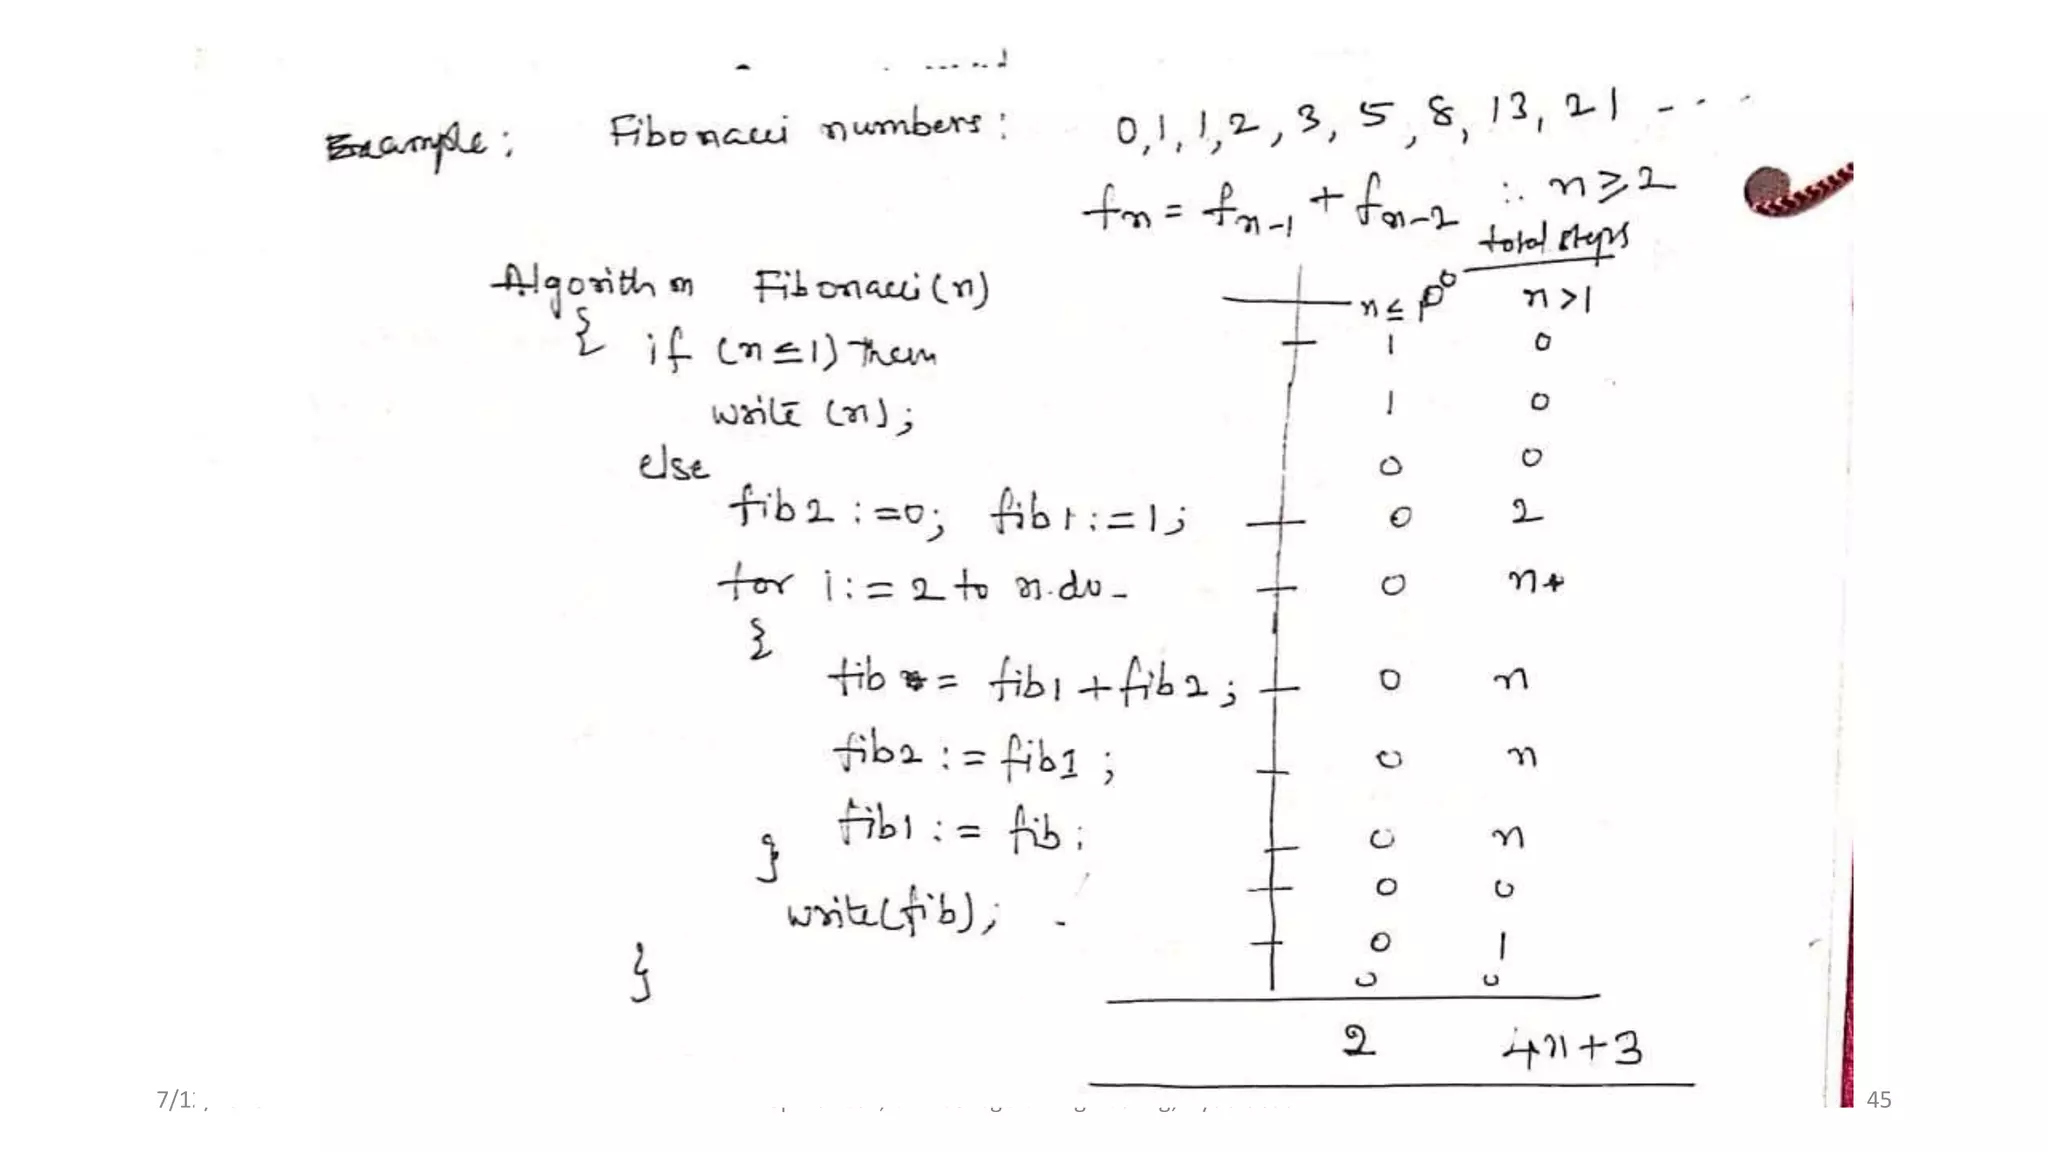 Example: Fibonacci numbers: 0,1,1,2,3,5,8,13,21 ....
fn = fn-1 + fn-2 :. n≥2
total steps
Algorithm Fibonacci(n) n≤ n>1
{ if (n≤1) then 1 0
write (n); 1 0
else 0 0
fib2 :=0; fib1:=1; 0 2
for i:=2 to n do 0 n
{
fib = fib1 + fib2; 0 n
fib2 := fib1; 0 n
fib1 := fib; 0 n
} 0 0
write(fib); 0 1
} 0 0
2 4n+3
45